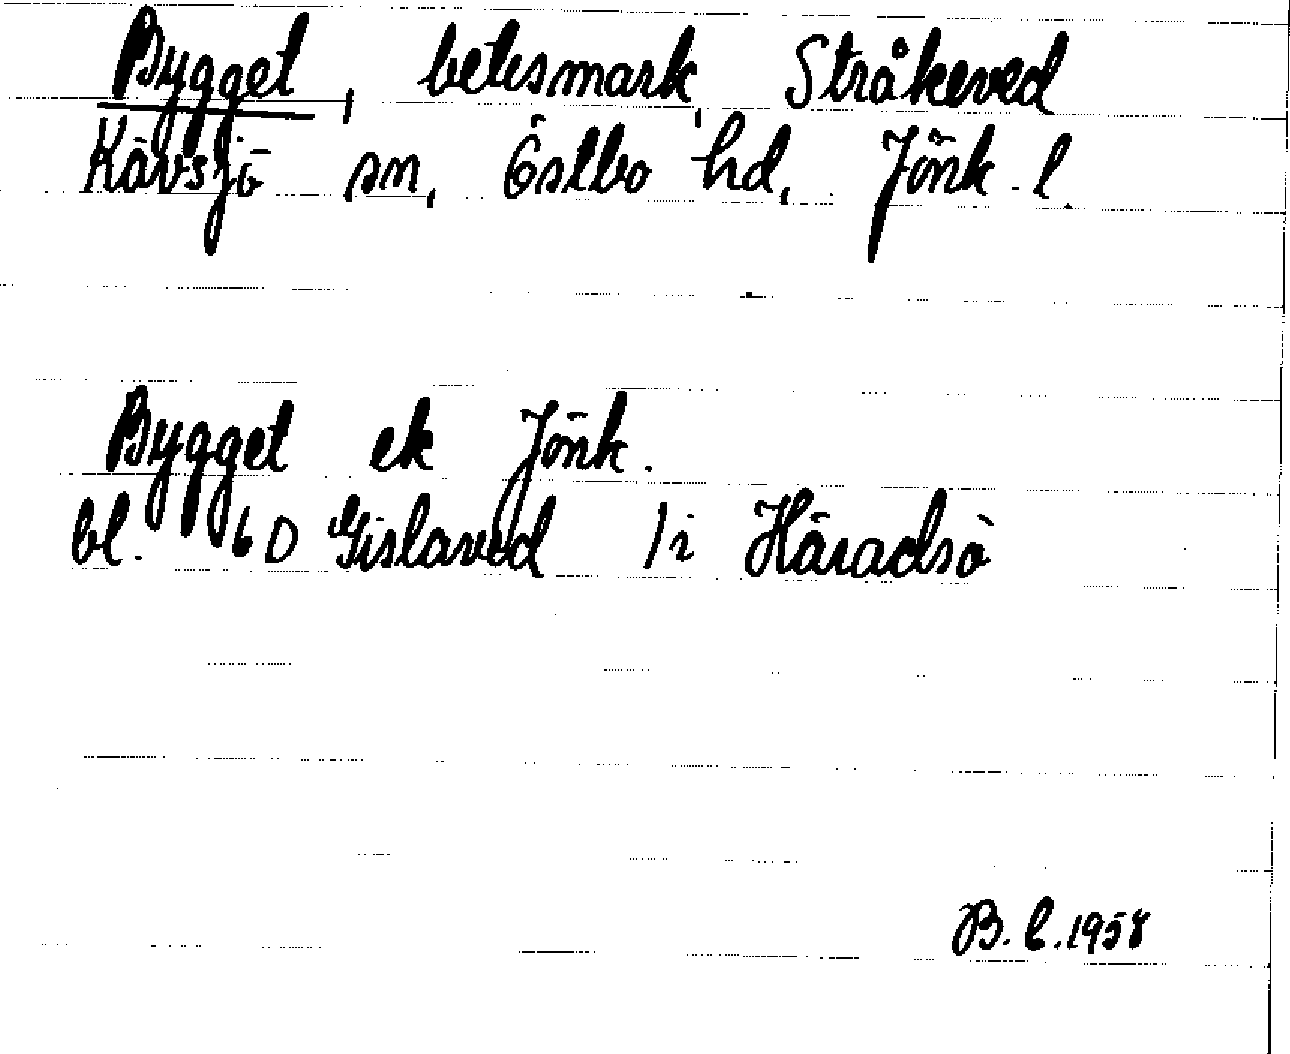 Bygget, betesmark, Stråkeved
Kävsjö sn, Östbo hd, Jönk. l.
Bygget ek Jönk.
bl. 6 D Gislaved 1i Häradsö
B. L. 1958